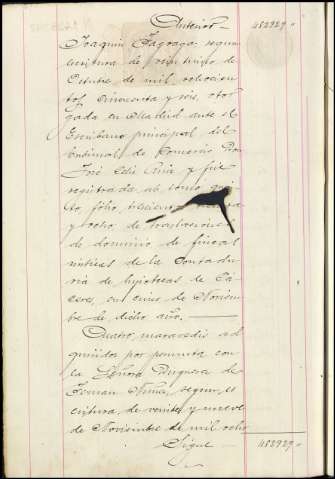 Anterior 452929"
Joaquin Fagoaga segun
escritura de veintiuno de
Octubre de mil ochocien
tos cincuenta y seis, otor
gada en Madrid ante el
Escribano principal del
tribunal de Comercio Don
José Celis Ruiz y fue
registrada al tomo
to, folio, trescientos
y ocho, de traslaciones
de dominio de fincas
rusticas de la Contadu
ria de hipotecas de Cá
ceres, en cinco de Noviem
bre de dicho año.
Cuatro maravedis ad
quiridos por permuta con
la Señora Duquesa de
Fernan Nuñez, segun es
critura de veinte y nueve
de Noviembre de mil ocho
Sigue 452929"